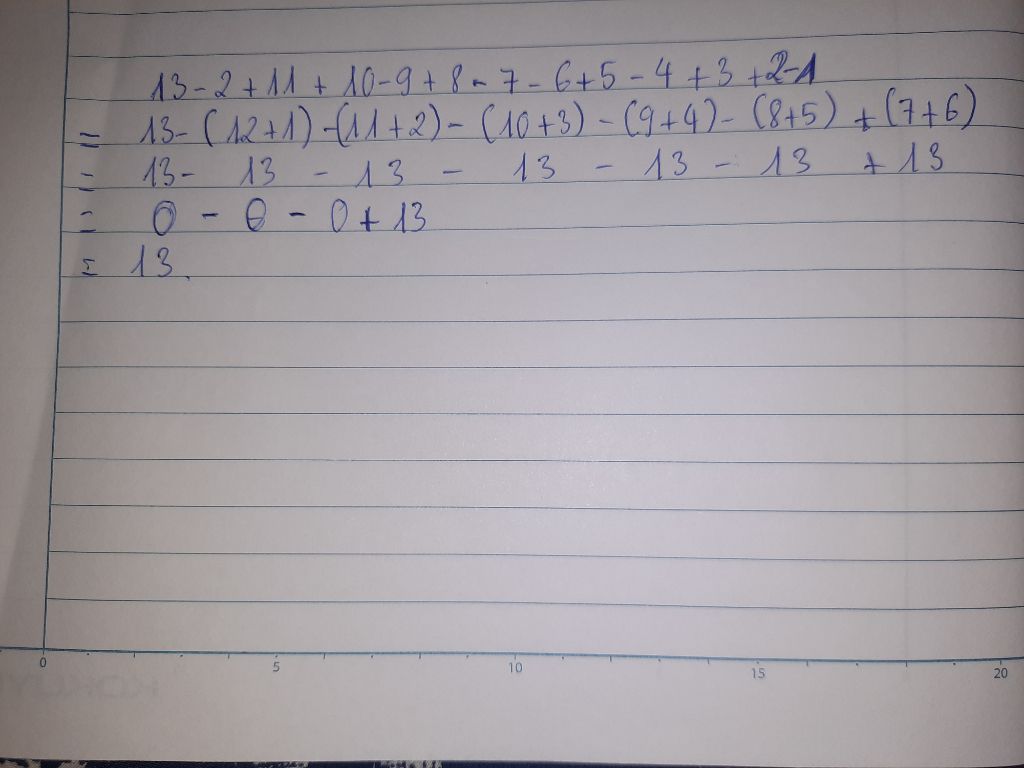 13 - 2 + 11 + 10 - 9 + 8 - 7 - 6 + 5 - 4 + 3 + 2 - 1
= 13 - (12 + 1) - (11 + 2) - (10 + 3) - (9 + 4) - (8 + 5) + (7 + 6)
= 13 - 13 - 13 - 13 - 13 - 13 + 13
= 0 - 0 - 0 + 13
= 13.
0 5 10 15 20